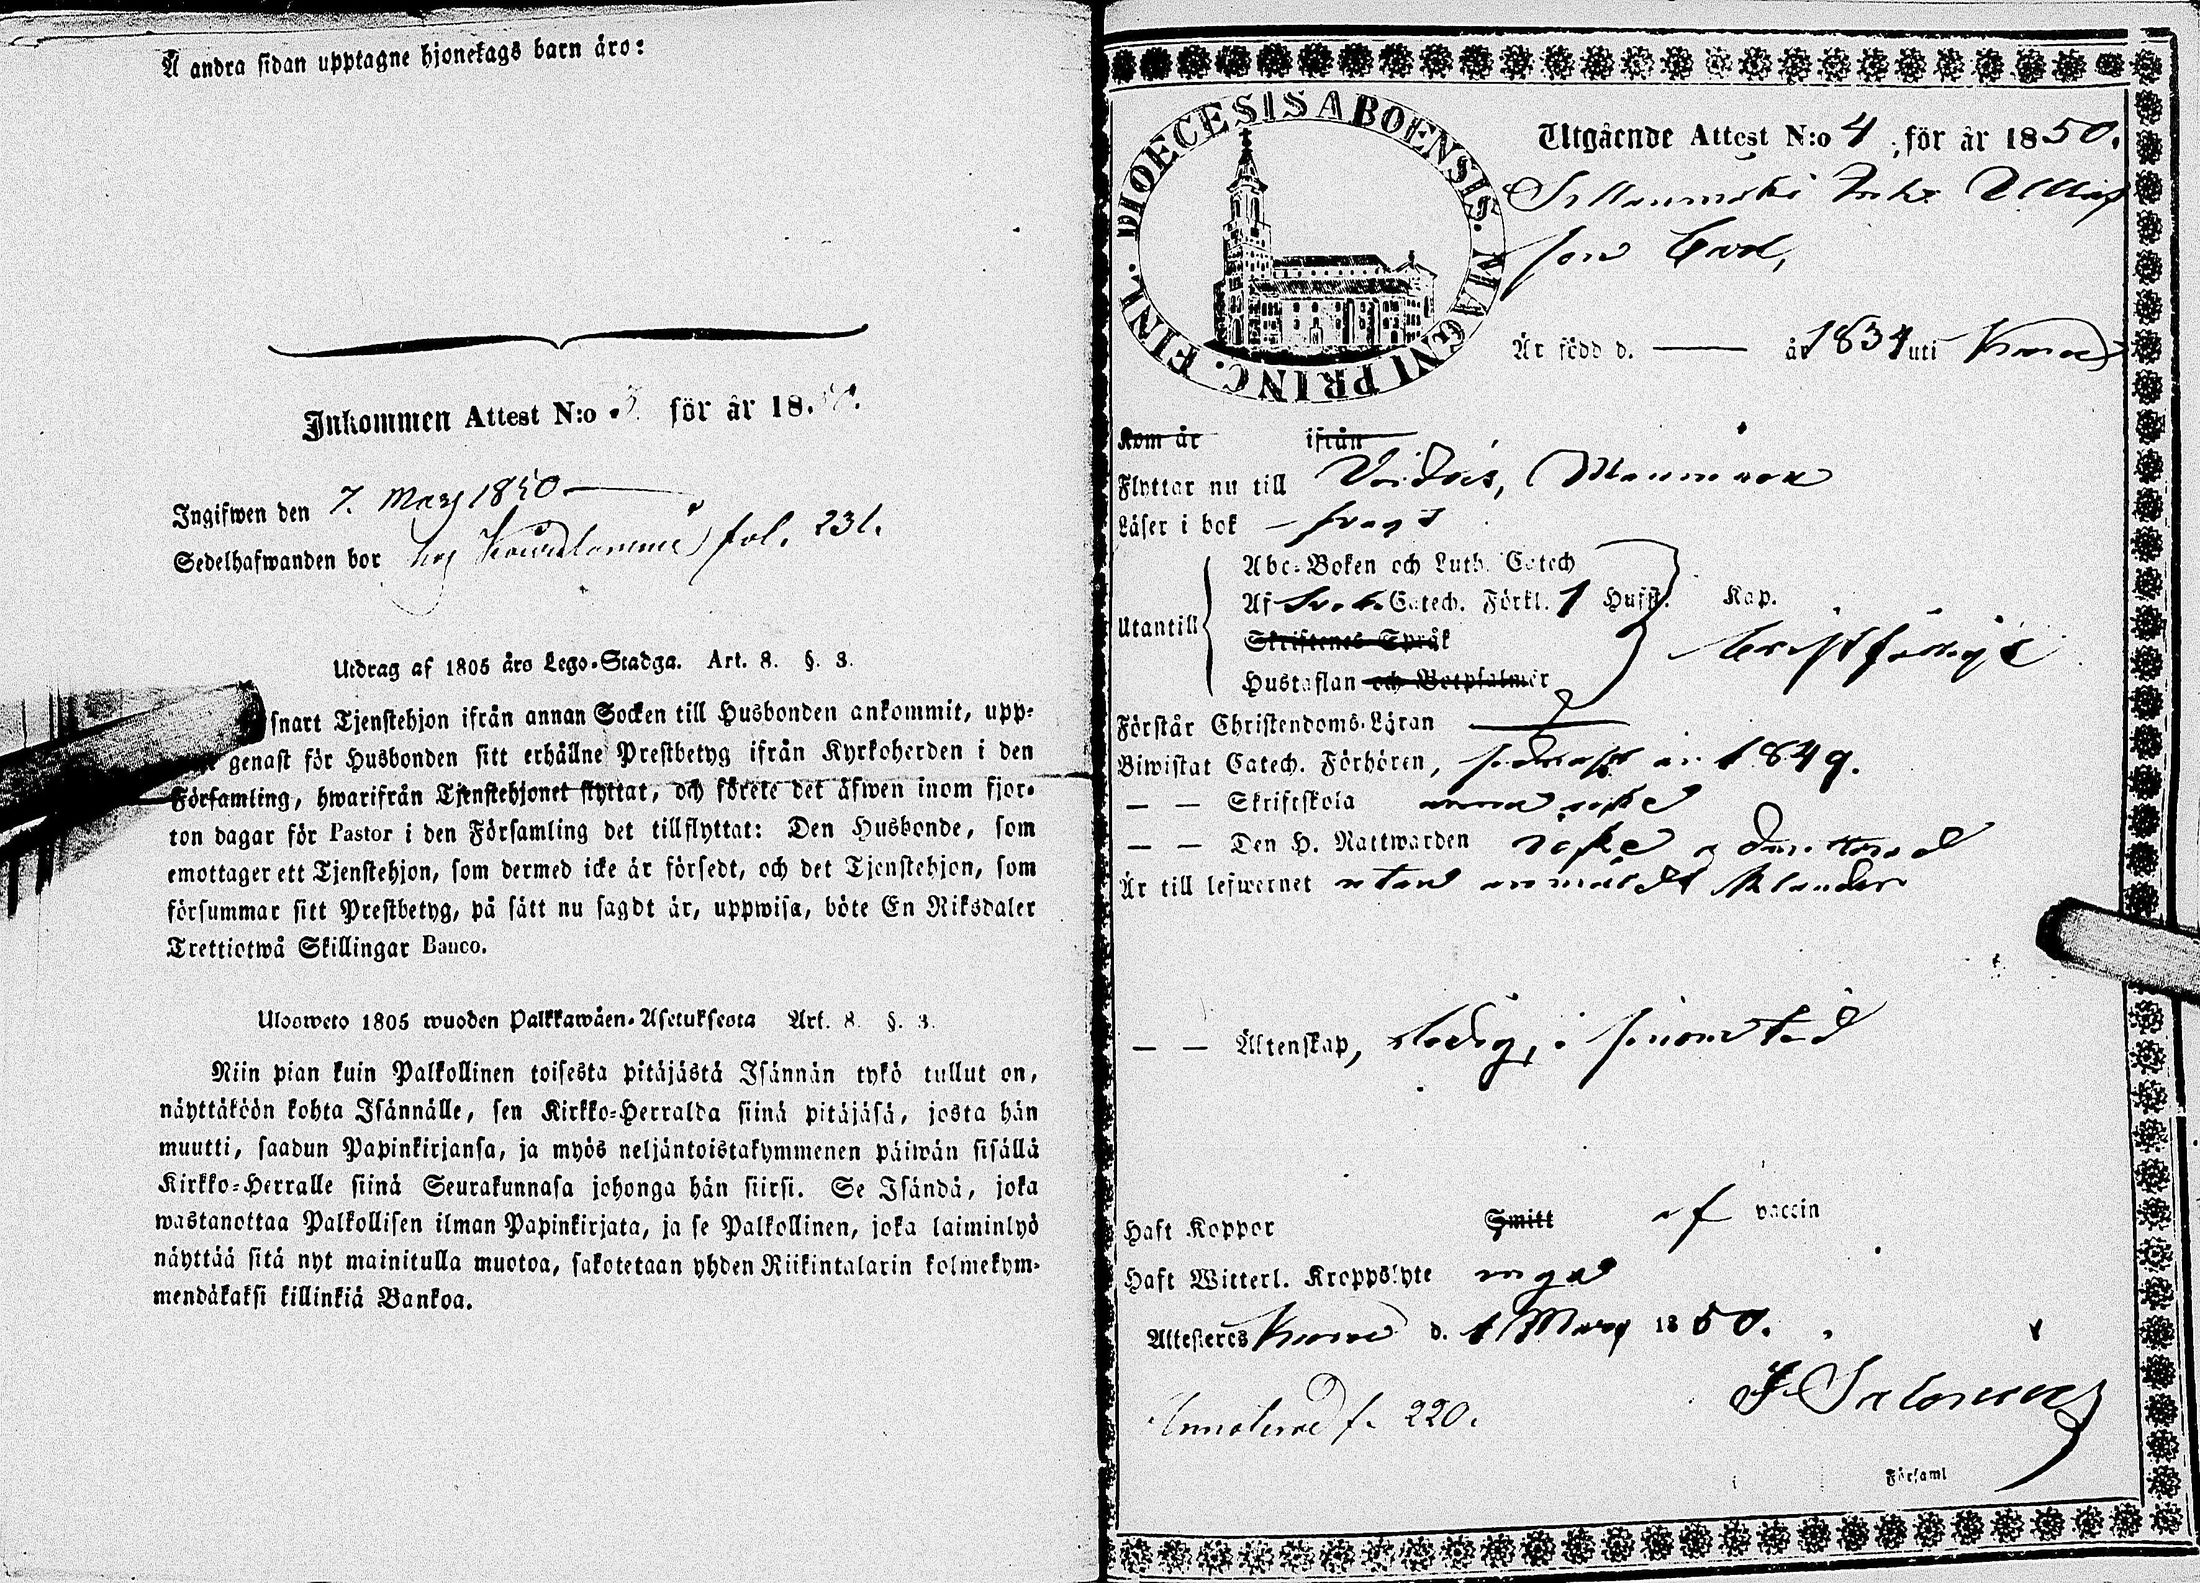 Å andra sidan upptagne hjonelags barn äro:
Inkommen Attest N:o för år 18
Ingifwen den 7. Mars 1850
Sedelhafwanden bor hos fol. 231.
Utdrag af 1805 års Lego-Stadga. Art. 8. §. 3.
snart Tjenstehjon ifrån annan Socken till Husbonden ankommit, upp-
genast för Husbonden sitt erhållne Prestbetyg ifrån Kyrkoherden i den
Församling, hwarifrån Tjenstehjonet flyttat, och förete det äfwen inom fjor-
ton dagar för Pastor i den Församling det tillflyttat: Den Husbonde, som
emottager ett Tjenstehjon, som dermed icke är försedt, och det Tjenstehjon, som
försummar sitt Prestbetyg, på sätt nu sagdt är, uppwisa, böte En Riksdaler
Trettiotwå Skillingar Banco.
Ulosweto 1805 wuoden Palkkawäen-Asetuksesta Art. 8. §. 3.
Niin pian kuin Palkollinen toisesta pitäjästä Isännän tykö tullut on,
näyttäköön kohta Isännälle, sen Kirkko-Herralda siinä pitäjäsä, josta hän
muutti, saadun Papinkirjansa, ja myös neljäntoistakymmenen päiwän sisällä
Kirkko-Herralle siinä Seurakunnasa johonga hän siirsi. Se Isändä, joka
wastanottaa Palkollisen ilman Papinkirjata, ja se Palkollinen, joka laiminlyö
näyttää sitä nyt mainitulla muotoa, sakotetaan yhden Riikintalarin kolmekym-
mendäkaksi killinkiä Bankoa.
DIOECESIS ABOENSIS. MAGNI PRINC. FINL.
Utgående Attest N:o 4, för år 1850.
son
Är född d. — år 1834 uti
Kom år ifrån
Flyttar nu till
Läser i bok — svagt
Utantill
Abc-Boken och Luth. Catech
Af Catech. Förkl. 1 Hufst. Kap.
Skriftenes Språk
Hustaflan och Botpsalmer
bristfälligt
Förstår Christendoms-Läran
Biwistat Catech. Förhören, sednast år 1849.
— — Skriftskola
— — Den H. Nattwarden icke admitterad
Är till lefwernet utan anmäldt klander
— — Äktenskap, ledig, i
Haft Koppor Smitt af vaccin
Haft Witterl. Kroppslyte inga
Attesteres d. 1 Mars 1850.
f. 220.
Församl